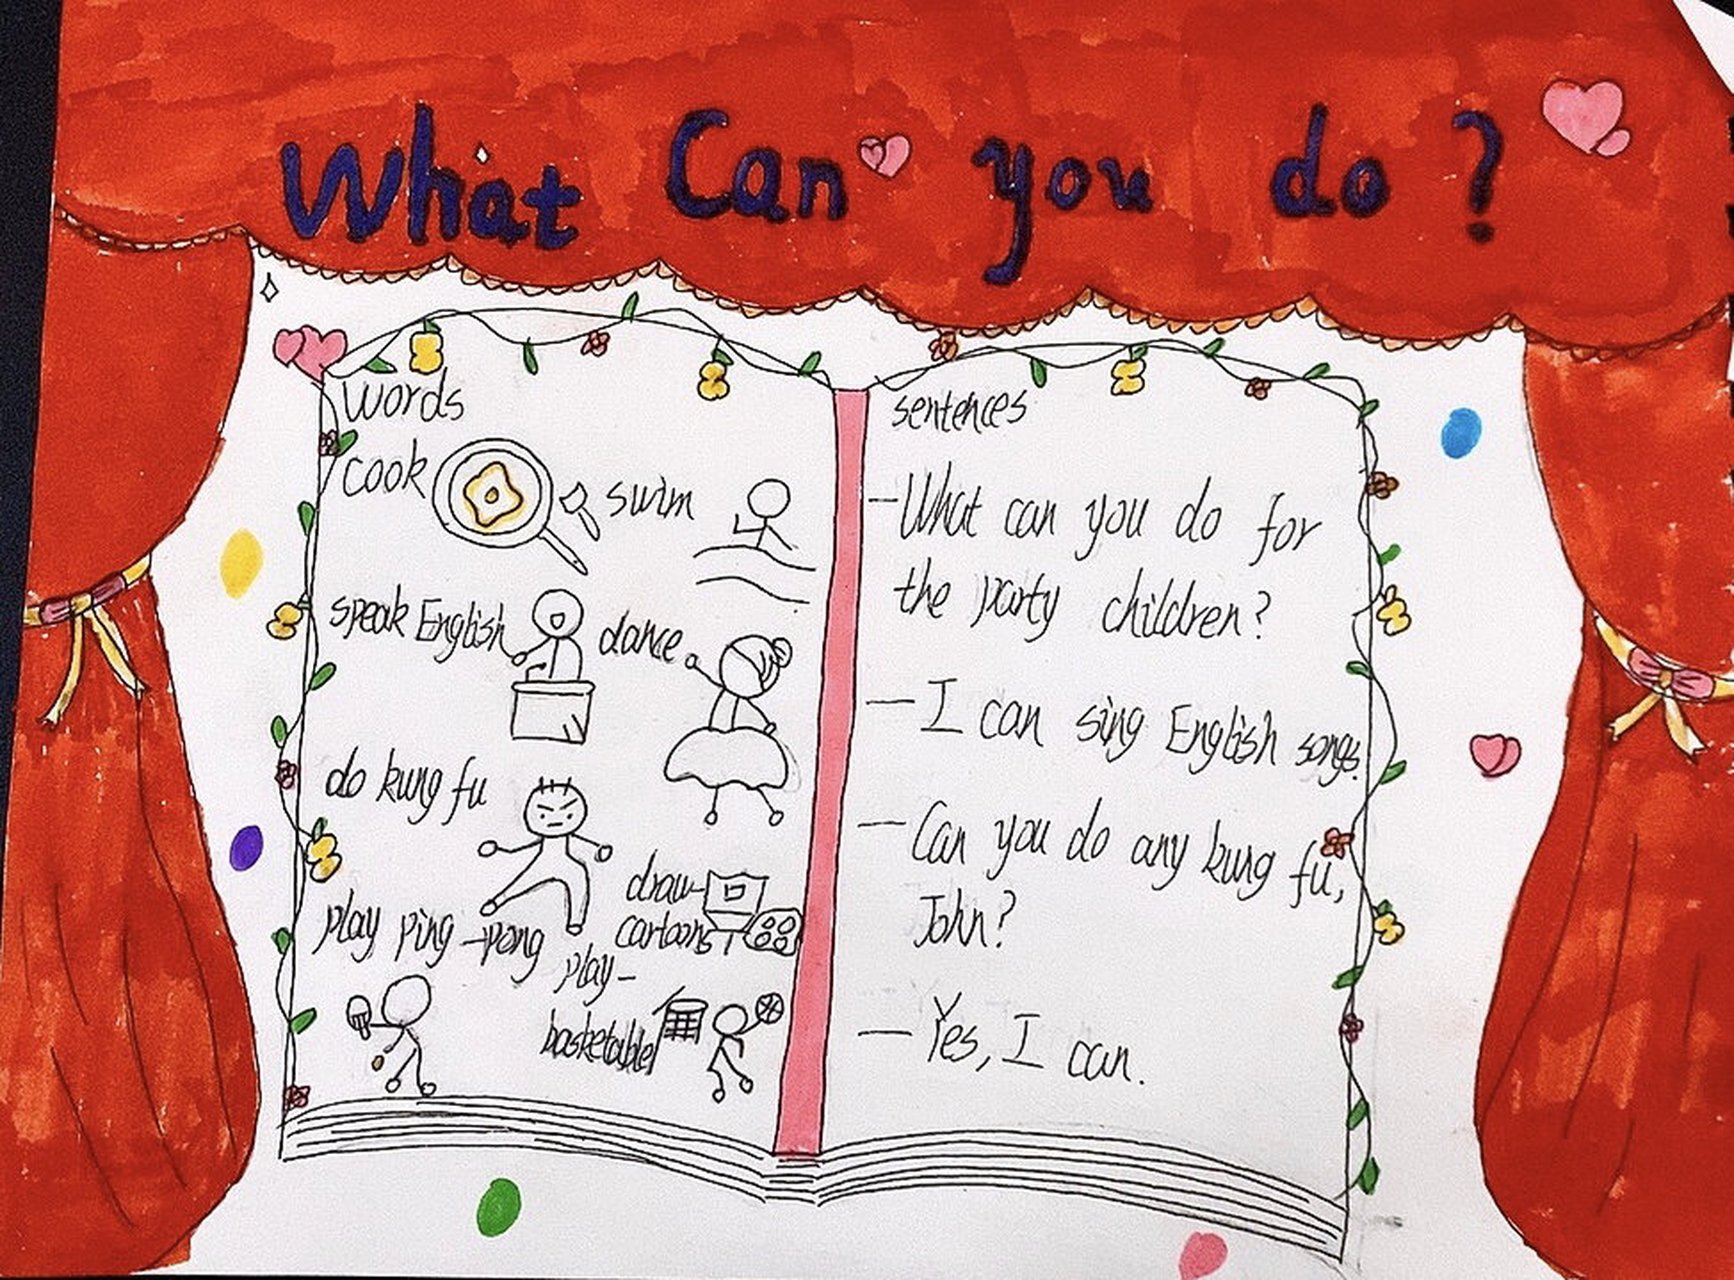 What Can you do?
words
cook
swim
speak English
dance
do kung fu
draw-
cartoons
play ping-pong
play-
basketabll
sentences
-What can you do for
the party children?
-I can sing English songs.
-Can you do any kung fu,
John?
-Yes, I can.